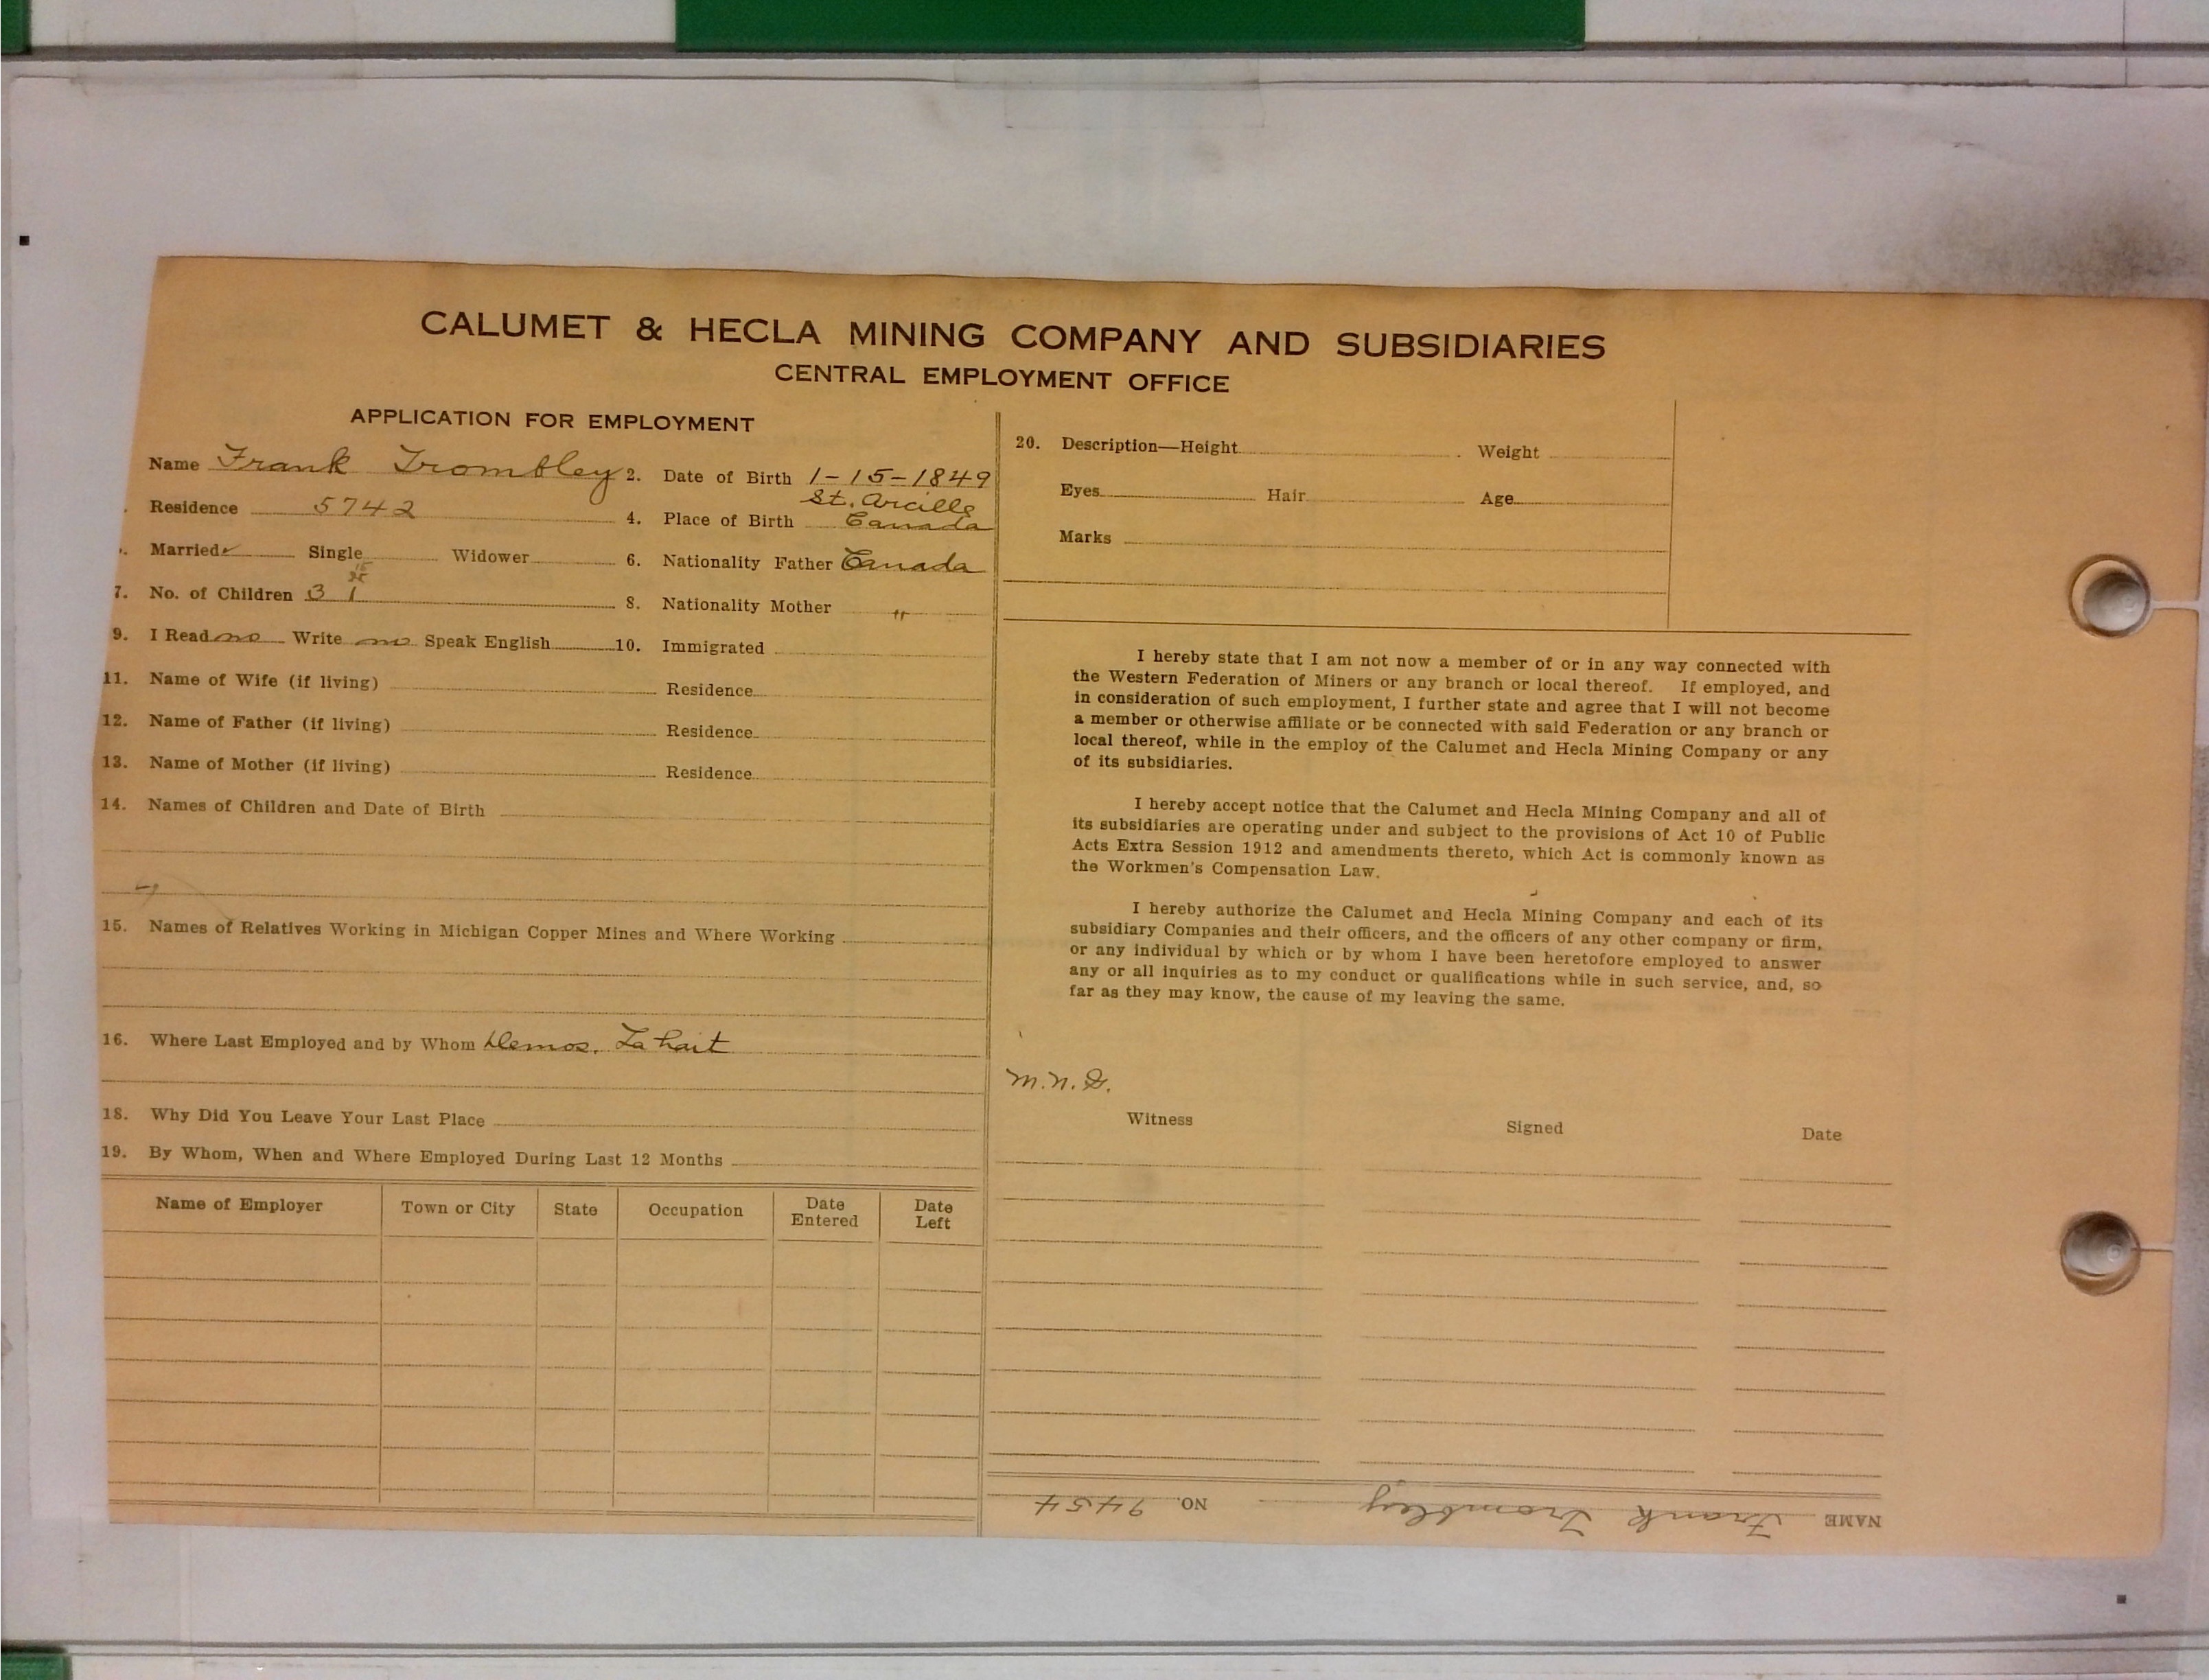 CALUMET & HECLA MINING COMPANY AND SUBSIDIARIES
CENTRAL EMPLOYMENT OFFICE
APPLICATION FOR EMPLOYMENT
Name Frank Trombley 2. Date of Birth 1-15-1849
Residence 5742 4. Place of Birth St. Arcille Canada
Married ✓ Single Widower 6. Nationality Father Canada
7. No. of Children 3 1 8. Nationality Mother "
9. I Read no Write no Speak English 10. Immigrated
11. Name of Wife (if living) Residence
12. Name of Father (if living) Residence
13. Name of Mother (if living) Residence
14. Names of Children and Date of Birth
15. Names of Relatives Working in Michigan Copper Mines and Where Working
16. Where Last Employed and by Whom
18. Why Did You Leave Your Last Place
19. By Whom, When and Where Employed During Last 12 Months
Name of Employer Town or City State Occupation Date Entered Date Left
20. Description—Height Weight
Eyes Hair Age
Marks
I hereby state that I am not now a member of or in any way connected with
the Western Federation of Miners or any branch or local thereof. If employed, and
in consideration of such employment, I further state and agree that I will not become
a member or otherwise affiliate or be connected with said Federation or any branch or
local thereof, while in the employ of the Calumet and Hecla Mining Company or any
of its subsidiaries.
I hereby accept notice that the Calumet and Hecla Mining Company and all of
its subsidiaries are operating under and subject to the provisions of Act 10 of Public
Acts Extra Session 1912 and amendments thereto, which Act is commonly known as
the Workmen's Compensation Law.
I hereby authorize the Calumet and Hecla Mining Company and each of its
subsidiary Companies and their officers, and the officers of any other company or firm,
or any individual by which or by whom I have been heretofore employed to answer
any or all inquiries as to my conduct or qualifications while in such service, and, so
far as they may know, the cause of my leaving the same.
M.N.G.
Witness Signed Date
NAME Frank Trombley NO. 9454